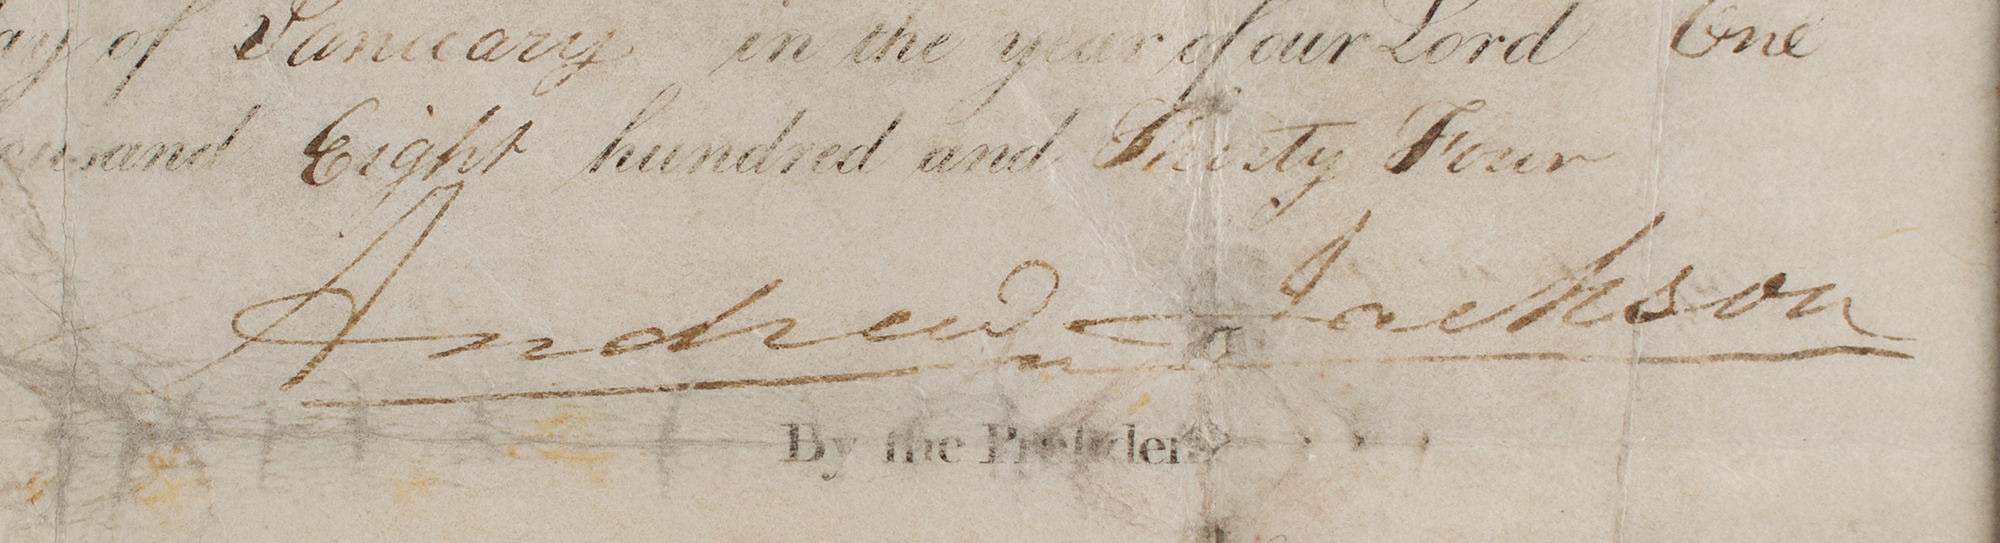 ay of January in the year of our Lord One
ousand Eight hundred and Thirty Four
Andrew Jackson
By the President